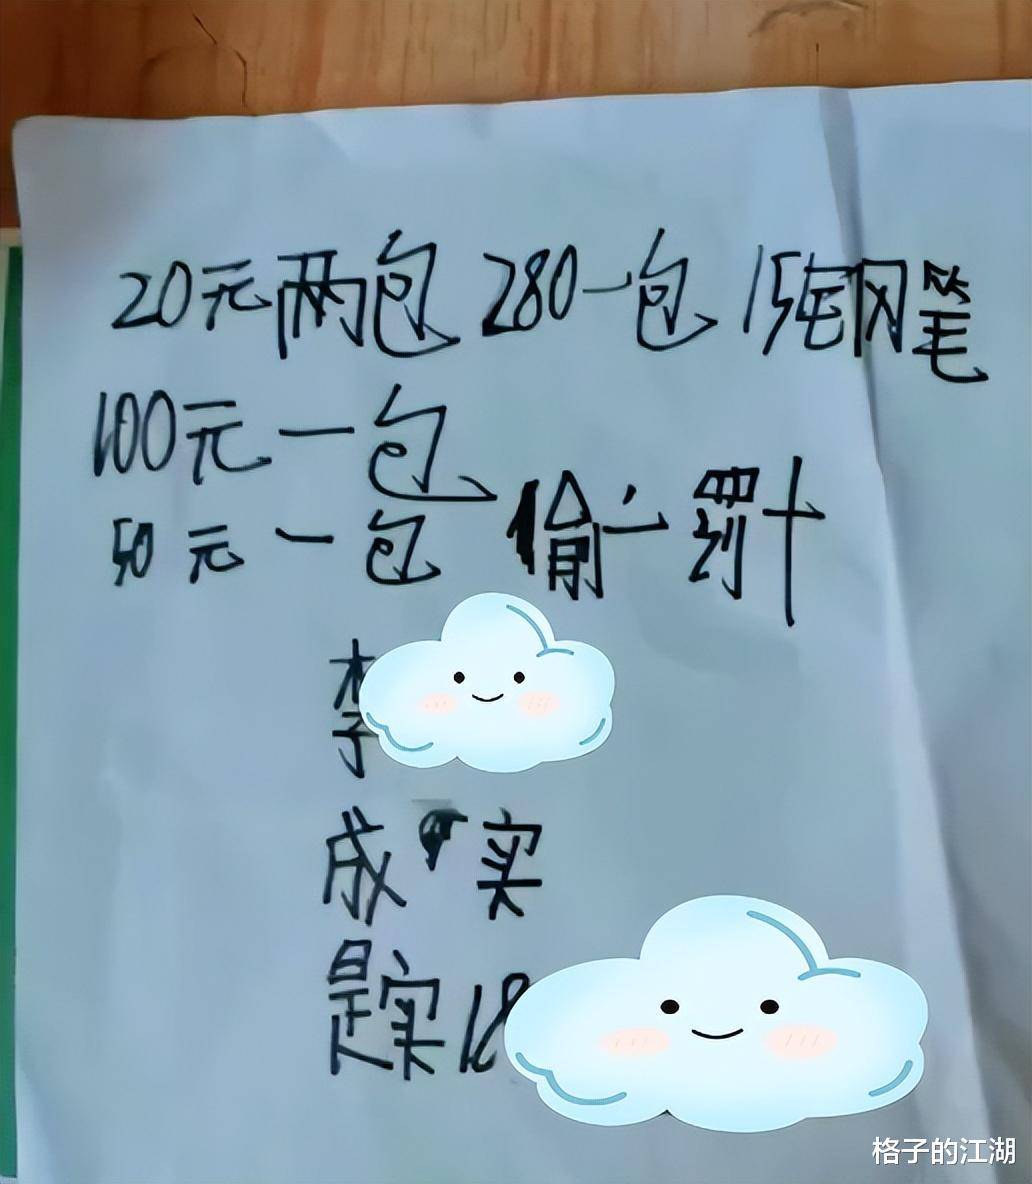 20元两包 280一包 15宅钢笔
100元一包
50元一包 偷一罚十
李
成 实
是实18
格子的江湖